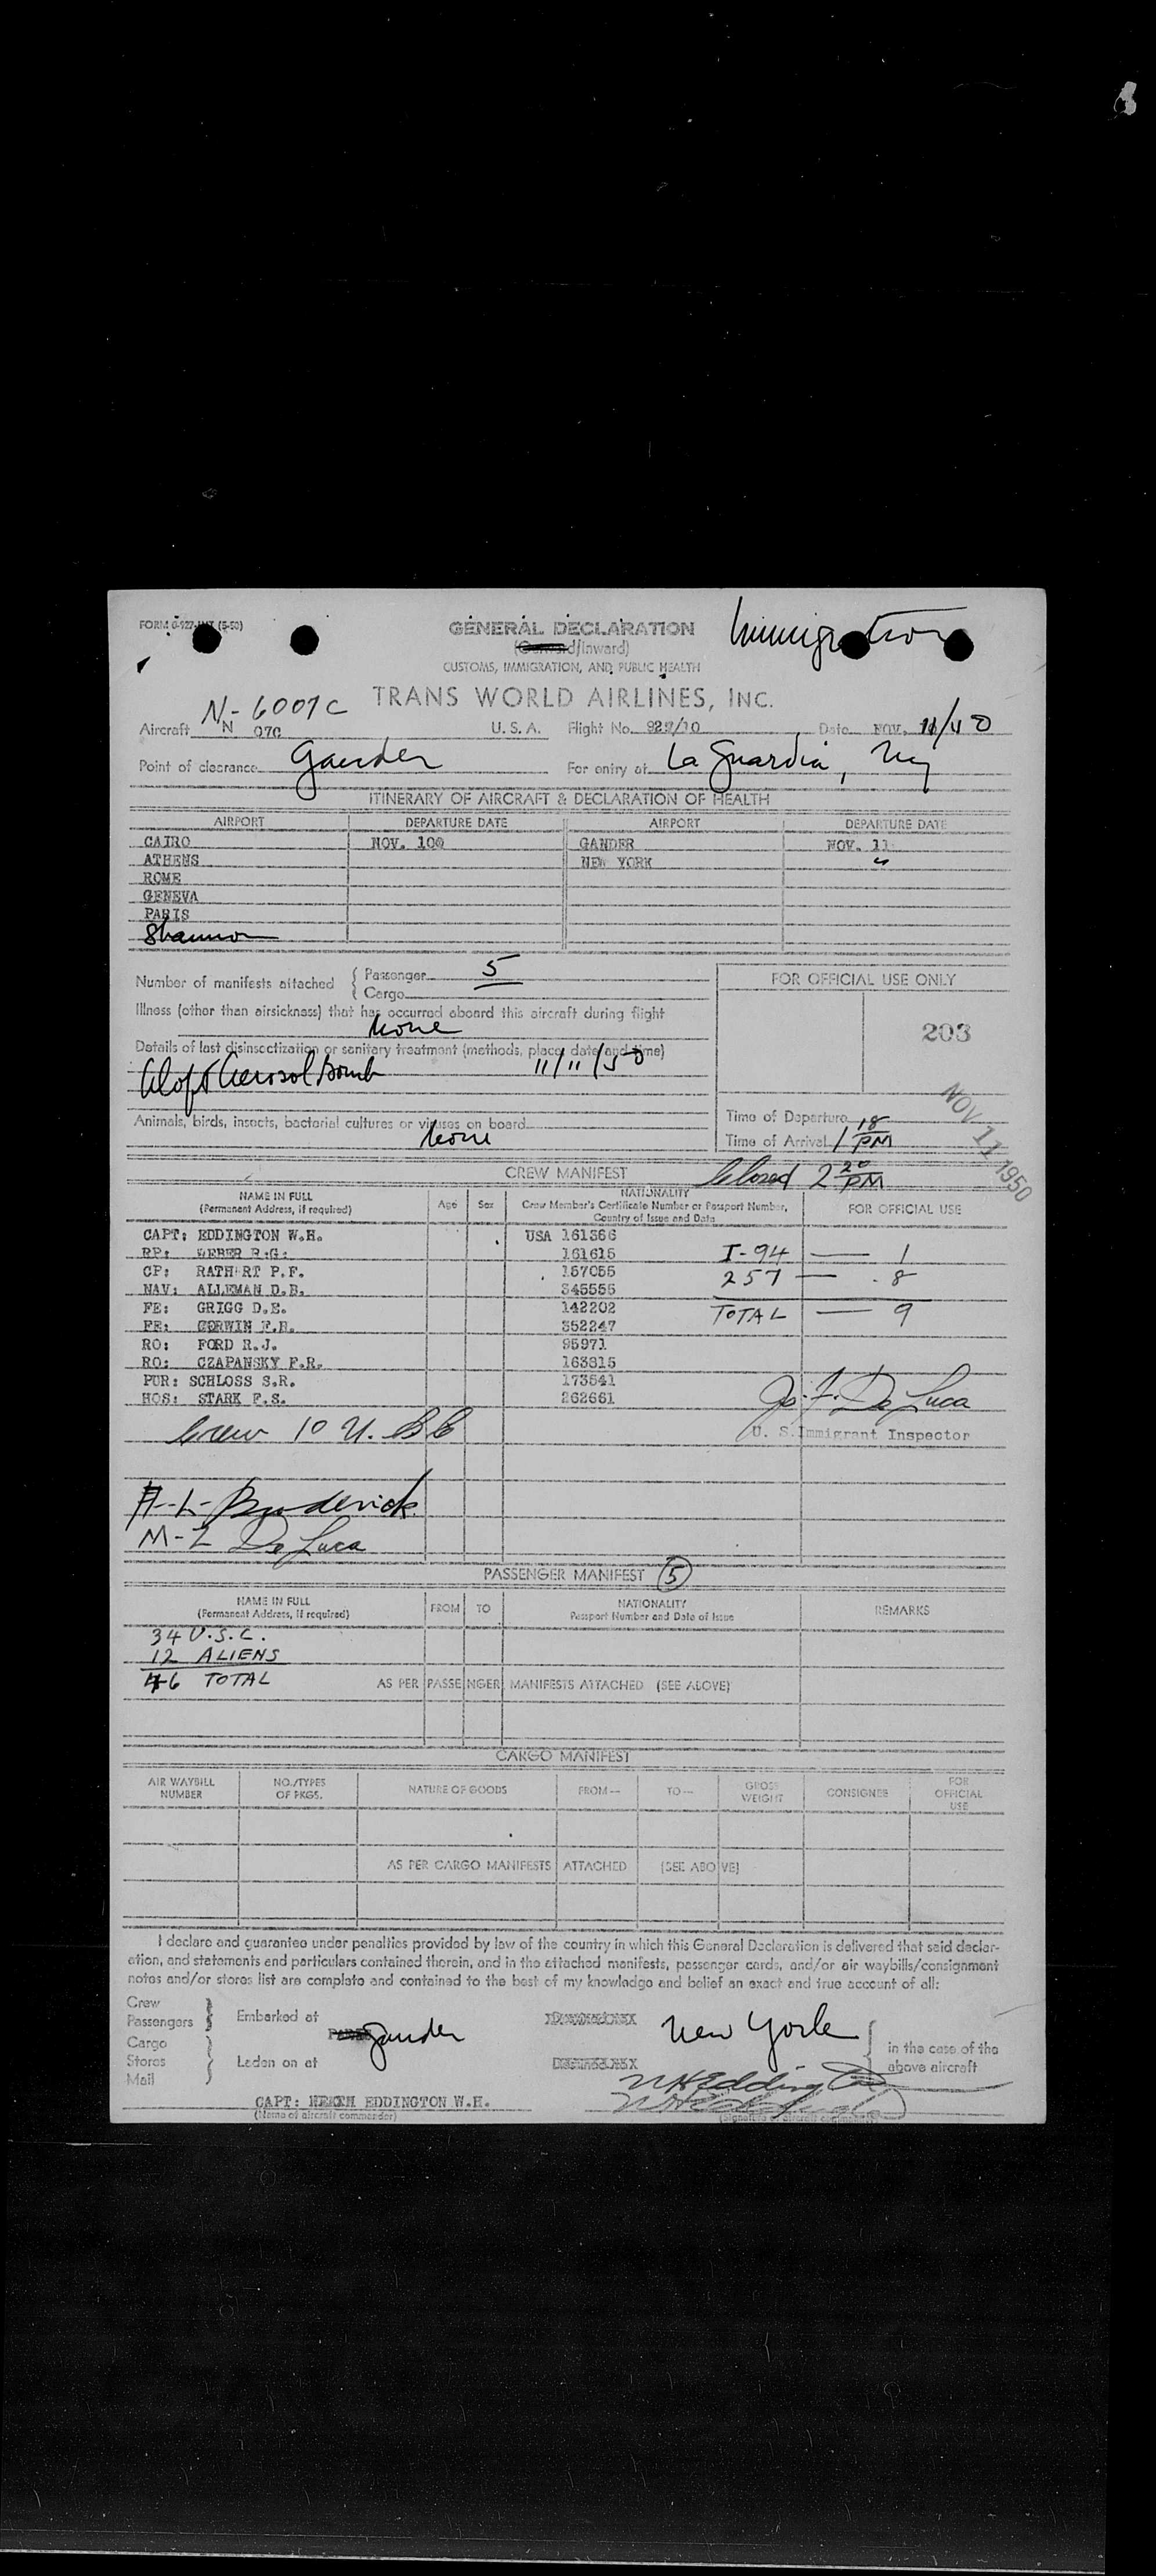 FORM G-927-INT (5-50)
GENERAL DECLARATION
Immigration
(Outward/Inward)
CUSTOMS, IMMIGRATION, AND PUBLIC HEALTH
TRANS WORLD AIRLINES, INC.
N-6007C
Aircraft N 07C U.S.A. Flight No. 927/10 Date NOV. 11/50
Point of clearance Gander For entry at La Guardia, NY
ITINERARY OF AIRCRAFT & DECLARATION OF HEALTH
AIRPORT DEPARTURE DATE AIRPORT DEPARTURE DATE
CAIRO NOV. 10 GANDER NOV. 11
ATHENS NEW YORK "
ROME
GENEVA
PARIS
Shannon
Number of manifests attached { Passenger 5
{ Cargo
FOR OFFICIAL USE ONLY
Illness (other than airsickness) that has occurred aboard this aircraft during flight
None
203
Details of last disinsectization or sanitary treatment (methods, place, date and time)
Aloft Aerosol Bomb 11/11/50
Animals, birds, insects, bacterial cultures or viruses on board
None
Time of Departure
Time of Arrival 1 18 PM
NOV 11 1950
CREW MANIFEST Closed 2 20 PM
NAME IN FULL
(Permanent Address, if required) Age Sex NATIONALITY
Crew Member's Certificate Number or Passport Number,
Country of Issue and Date FOR OFFICIAL USE
CAPT: EDDINGTON W.H. USA 161366
RP: WEBER R.G. 161615 I-94 — 1
CP: RATHERT P.F. 157055 257 — 8
NAV: ALLEMAN D.B. 345555
FE: GRIGG D.E. 142202 TOTAL — 9
FE: CORWIN F.H. 352247
RO: FORD R.J. 95971
RO: CZAPANSKY F.R. 163315
PUR: SCHLOSS S.R. 173541
HOS: STARK F.S. 262661
Jo. F. De Luca
Crew 10 U.S.C. U. S. Immigrant Inspector
A-L- Broderick
M-L De Luca
PASSENGER MANIFEST 5
NAME IN FULL
(Permanent Address, if required) FROM TO NATIONALITY
Passport Number and Date of Issue REMARKS
34 U.S.C.
12 ALIENS
46 TOTAL AS PER PASSENGER MANIFESTS ATTACHED (SEE ABOVE)
CARGO MANIFEST
AIR WAYBILL
NUMBER NO./TYPES
OF PKGS. NATURE OF GOODS FROM— TO— GROSS
WEIGHT CONSIGNEE FOR
OFFICIAL
USE
AS PER CARGO MANIFESTS ATTACHED (SEE ABOVE)
I declare and guarantee under penalties provided by law of the country in which this General Declaration is delivered that said declar-
ation, and statements and particulars contained therein, and in the attached manifests, passenger cards, and/or air waybills/consignment
notes and/or stores list are complete and contained to the best of my knowledge and belief an exact and true account of all:
Crew
Passengers } Embarked at Gander New York
Cargo
Stores } Laden on at
Mail
{ in the case of the
above aircraft
WHEddington
WHEddington
CAPT: EDDINGTON W.H.
(Name of aircraft commander) (Signature of aircraft commander)